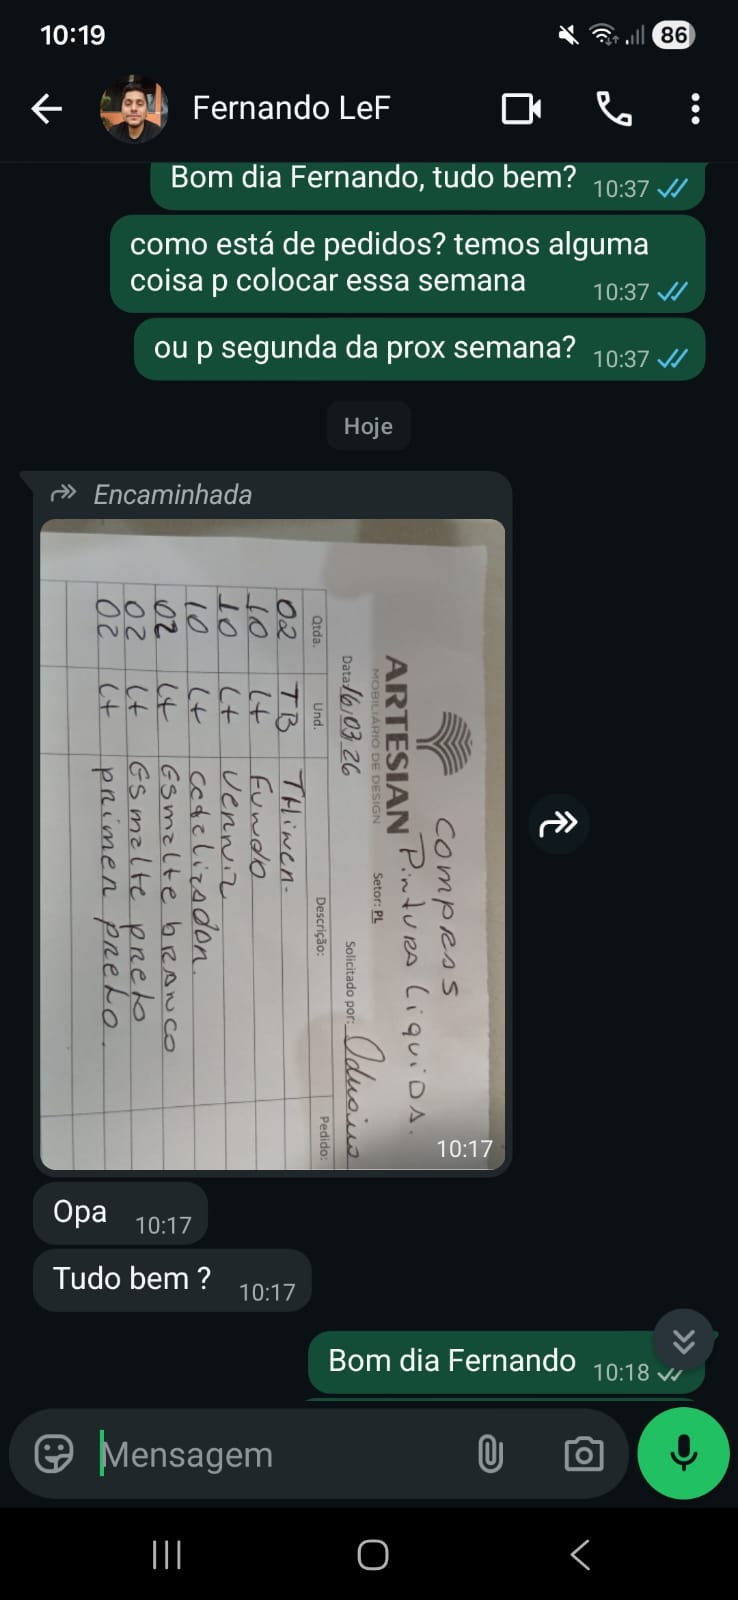 10:19
86
Fernando LeF
Bom dia Fernando, tudo bem? 10:37
como está de pedidos? temos alguma
coisa p colocar essa semana 10:37
ou p segunda da prox semana? 10:37
Hoje
Encaminhada
Compras
Pintura Liquida.
ARTESIAN
MOBILIÁRIO DE DESIGN
Setor: PL
Data: 16/03/26 Solicitado por:
Qtda. Und. Descrição: Pedido:
02 TB THinen.
10 Lt Fundo
10 Lt Verniz
10 Lt catalizador.
02 Lt Esmalte branco
02 Lt Esmalte preto
02 Lt primer preto.
10:17
Opa 10:17
Tudo bem ? 10:17
Bom dia Fernando 10:18
Mensagem